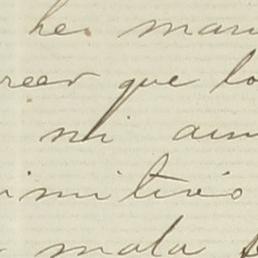 he man
reer que lo
mi aun
imitivo
mala